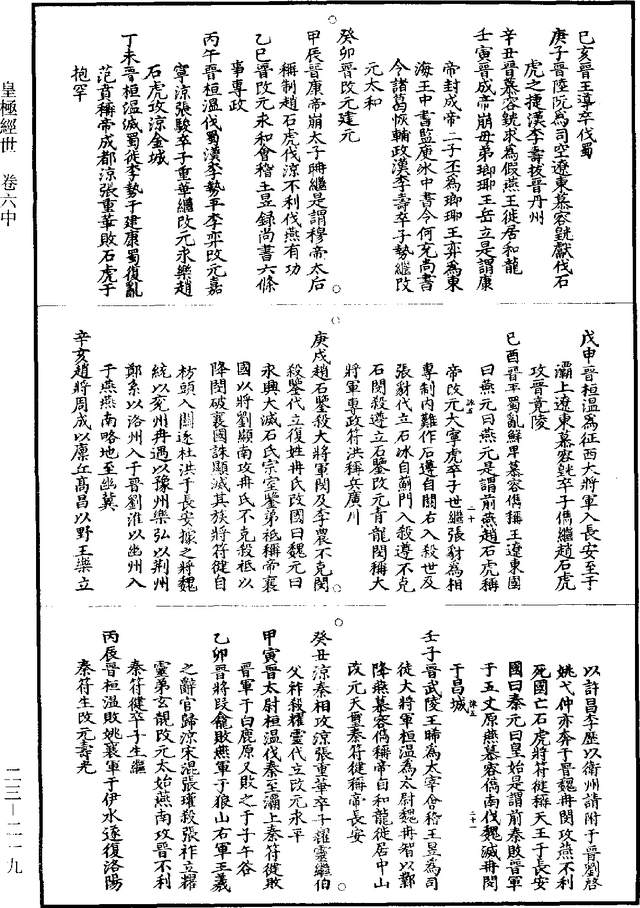 皇極經世 卷六中
己亥晉王導卒伐蜀
庚子晉陸阮為司空遼東慕容皝獻伐石
虎之捷漢李壽拔晉丹州
辛丑晉慕容皝求為假燕王徙居和龍
壬寅晉成帝崩母弟瑯琊王岳立是謂康
帝封成帝二子丕為瑯琊王弈為東
海王中書監庾冰中書令何充尚書
令諸葛恢輔政漢李壽卒子勢繼改
元太和
癸卯晉改元建元
甲辰晉康帝崩太子聃繼是謂穆帝太后
稱制趙石虎伐涼不利伐燕有功
乙巳晉改元永和會稽王昱錄尚書六條
事專政
丙午晉桓溫伐蜀漢李勢平李弈改元嘉
寧涼張駿卒子重華繼改元永樂趙
石虎攻涼金城
丁未晉桓溫滅蜀徙李勢于建康蜀復亂
范賁稱帝成都涼張重華敗石虎于
抱罕
戊申晉桓溫為征西大將軍入長安至于
灞上遼東慕容皝卒子儁繼趙石虎
攻晉竟陵
己酉晉平蜀亂鮮卑慕容儁稱王遼東國
曰燕元曰燕元是謂前燕趙石虎稱
帝改元太寧虎卒子世繼張豺為相
專制內難作石遵自關右入殺世及
張豺代立石冰自薊門入殺遵不克
石閔殺遵立石鑒改元青龍閔稱大
將軍專政苻洪稱兵廣川
庚戌趙石鑒殺大將軍閔及李農不克閔
殺鑒代立復姓冉氏改國曰魏元曰
永興大滅石氏宗室鑒弟祇稱帝襄
國以將劉顯南攻冉氏不克殺祇以
降閔破襄國誅顯滅其族將苻健自
枋頭入關逐杜洪于長安據之將魏
統以兗州冉遇以豫州樂弘以荊州
鄭系以洛州入于晉劉准以幽州入
于燕燕南略地至幽冀
辛亥趙將周成以廩丘高昌以野王樂立
以許昌李歷以衛州請附于晉劉啓
姚弋仲亦奔于晉魏冉閔攻燕不利
死國亡石虎將苻健稱天王于長安
國曰秦元曰皇始是謂前秦敗晉軍
于五丈原燕慕容儁南伐魏滅冉閔
于昌城
壬子晉武陵王晞為太宰會稽王昱為司
徒大將軍桓溫為太尉魏冉智以鄴
降燕慕容儁稱帝自和龍徙居中山
改元天璽秦苻健稱帝長安
癸丑涼秦相攻涼張重華卒子耀靈繼伯
父祚殺耀靈代立改元永平
甲寅晉太尉桓溫伐秦至灞上秦苻健敗
晉軍于白鹿原又敗之于子午谷
乙卯晉將段龕敗燕軍于狼山右軍王羲
之辭官歸涼宋混張瓘殺張祚立耀
靈弟玄靚改元太始燕南攻晉不利
秦苻健卒子生繼
丙辰晉桓溫敗姚襄軍于伊水遂復洛陽
秦苻生改元壽光
二三—二一九